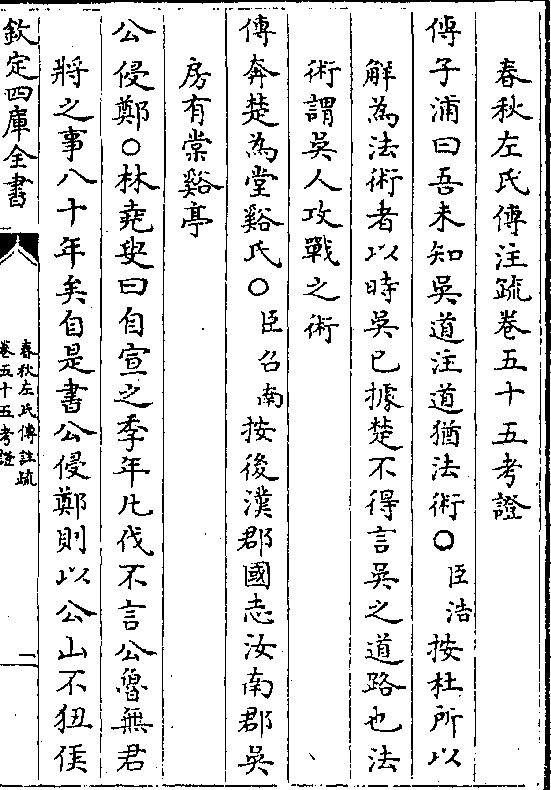 春秋左氏傳注疏卷五十五考證
傳子浦曰吾未知吳道注道猶法術〇臣浩按杜所以
解為法術者以時吳已據楚不得言吳之道路也法
術謂吳人攻戰之術
傳奔楚為堂谿氏〇臣召南按後漢郡國志汝南郡吳
房有棠谿亭
公侵鄭〇林堯叟曰自宣之季年凡伐不言公魯無君
將之事八十年矣自是書公侵鄭則以公山不狃侯
欽定四庫全書
春秋左氏傳註疏
卷五十五考證
二